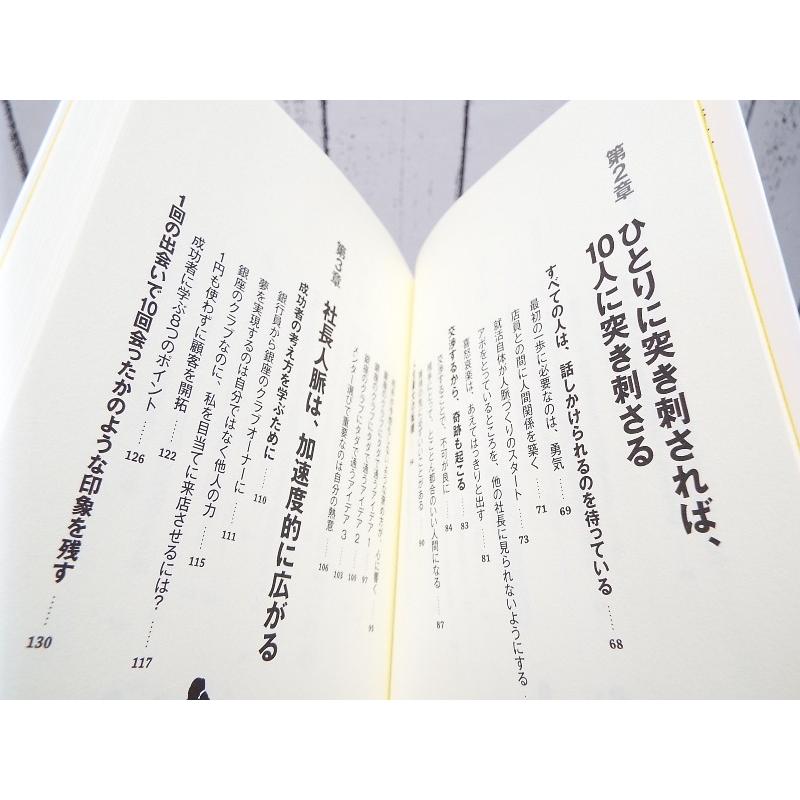 第2章
ひとりに突き刺されば、
10人に突き刺さる
すべての人は、話しかけられるのを待っている……68
最初の一歩に必要なのは、勇気……69
店員との間に人間関係を築く……71
就活自体が人脈づくりのスタート……73
アポをとっているところを、他の社長に見られないようにする
喜怒哀楽は、あえてはっきりと出す……81
交渉するから、奇跡も起こる……83
交渉することで、不可が良に……84
相手にとって、とことん都合のいい人間になる……87
がある……90
心に響く……95
銀座のクラブにタダで通うアイデア1……97
銀座のクラブにタダで通うアイデア2……100
銀座のクラブにタダで通うアイデア3……103
メンター選びで重要なのは自分の熱意……106
第3章
社長人脈は、加速度的に広がる
成功者の考え方を学ぶために……110
銀行員から銀座のクラブオーナーに……111
夢を実現するのは自分ではなく他人の力……115
銀座のクラブなのに、私を目当てに来店させるには？……117
1円も使わずに顧客を開拓……122
成功者に学ぶ8つのポイント……126
1回の出会いで10回会ったかのような印象を残す……130